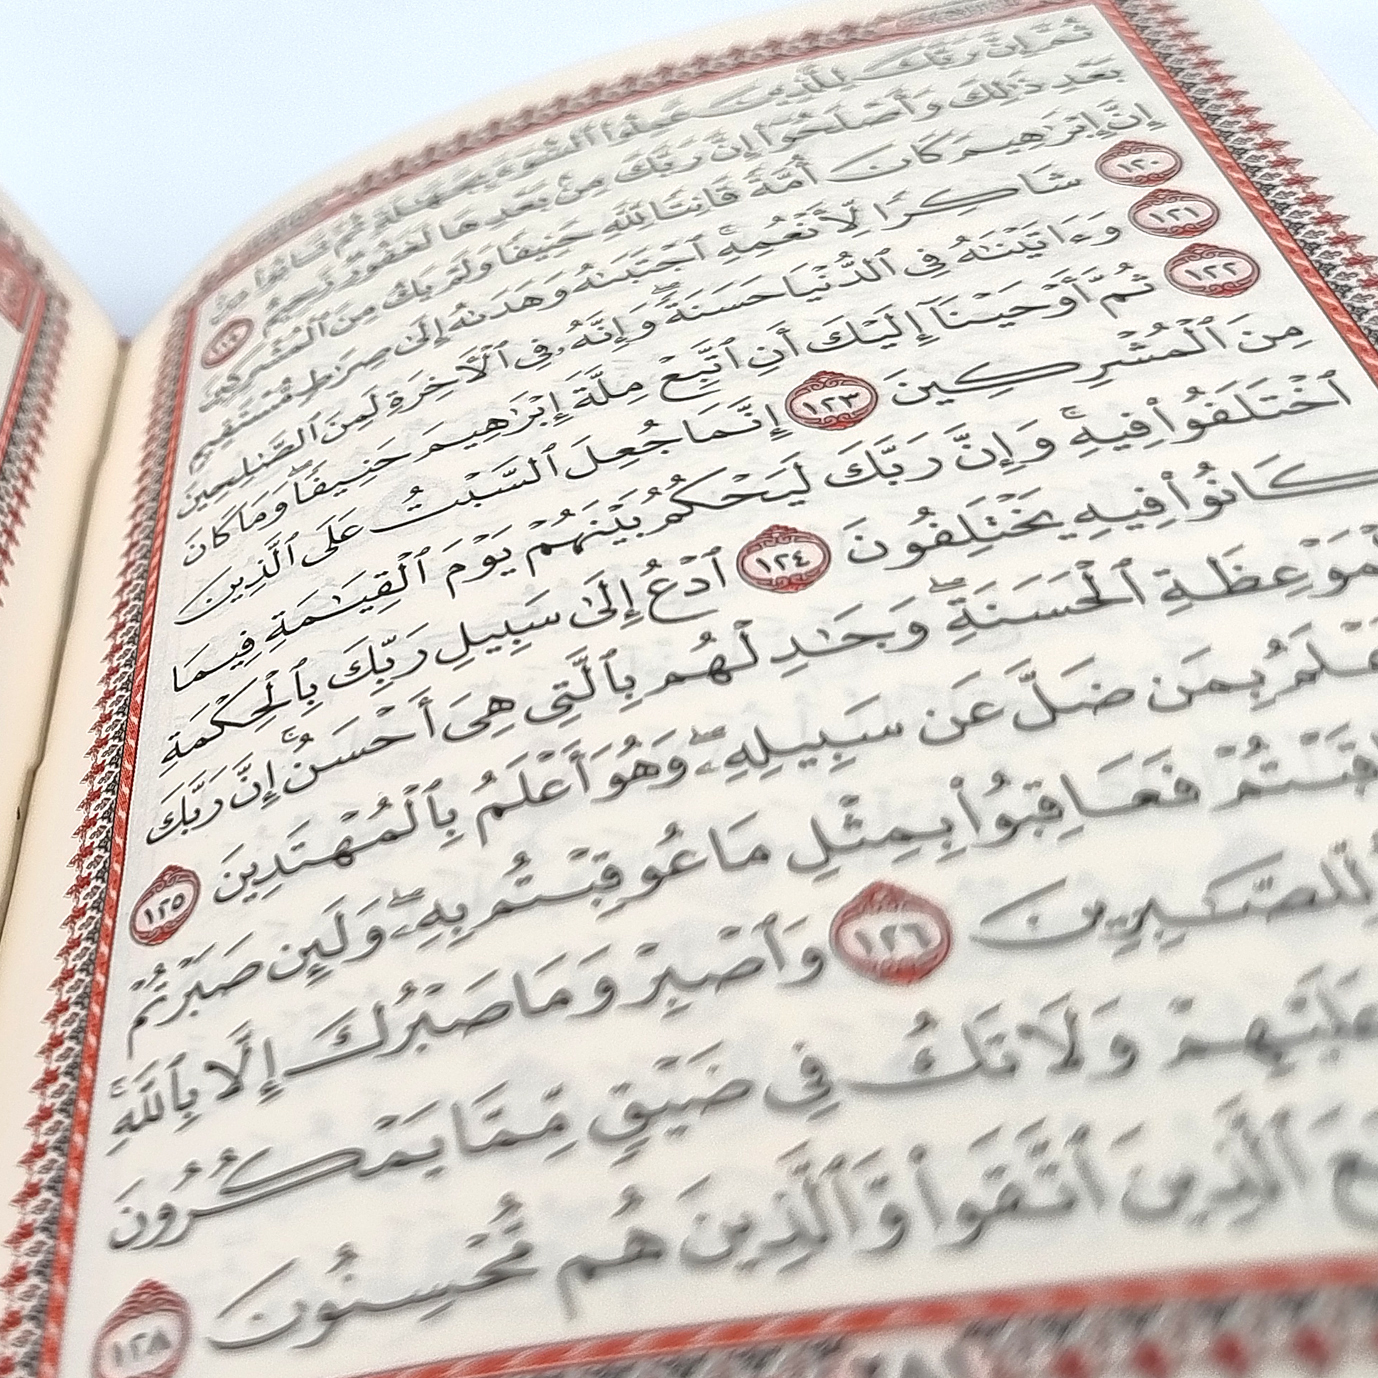 ثُمَّ إِنَّ رَبَّكَ لِلَّذِينَ عَمِلُوا۟ ٱلسُّوٓءَ بِجَهَٰلَةٍ ثُمَّ تَابُوا۟ مِنۢ
بَعْدِ ذَٰلِكَ وَأَصْلَحُوٓا۟ إِنَّ رَبَّكَ مِنۢ بَعْدِهَا لَغَفُورٌ رَّحِيمٌ ١١٩
إِنَّ إِبْرَٰهِيمَ كَانَ أُمَّةً قَانِتًا لِّلَّهِ حَنِيفًا وَلَمْ يَكُ مِنَ ٱلْمُشْرِكِينَ
١٢٠ شَاكِرًا لِّأَنْعُمِهِ ۚ ٱجْتَبَىٰهُ وَهَدَىٰهُ إِلَىٰ صِرَٰطٍ مُّسْتَقِيمٍ
١٢١ وَءَاتَيْنَٰهُ فِى ٱلدُّنْيَا حَسَنَةً ۖ وَإِنَّهُۥ فِى ٱلْءَاخِرَةِ لَمِنَ ٱلصَّٰلِحِينَ
١٢٢ ثُمَّ أَوْحَيْنَآ إِلَيْكَ أَنِ ٱتَّبِعْ مِلَّةَ إِبْرَٰهِيمَ حَنِيفًا ۖ وَمَا كَانَ
مِنَ ٱلْمُشْرِكِينَ ١٢٣ إِنَّمَا جُعِلَ ٱلسَّبْتُ عَلَى ٱلَّذِينَ
ٱخْتَلَفُوا۟ فِيهِ ۚ وَإِنَّ رَبَّكَ لَيَحْكُمُ بَيْنَهُمْ يَوْمَ ٱلْقِيَٰمَةِ فِيمَا
كَانُوا۟ فِيهِ يَخْتَلِفُونَ ١٢٤ ٱدْعُ إِلَىٰ سَبِيلِ رَبِّكَ بِٱلْحِكْمَةِ
ٱلْحَسَنَةِ ۖ وَجَٰدِلْهُم بِٱلَّتِى هِىَ أَحْسَنُ ۚ إِنَّ رَبَّكَ
بِمَن ضَلَّ عَن سَبِيلِهِۦ ۖ وَهُوَ أَعْلَمُ بِٱلْمُهْتَدِينَ ١٢٥
فَعَاقِبُوا۟ بِمِثْلِ مَا عُوقِبْتُم بِهِۦ ۖ وَلَئِن صَبَرْتُمْ
لِّلصَّٰبِرِينَ ١٢٦ وَٱصْبِرْ وَمَا صَبْرُكَ إِلَّا بِٱللَّهِ ۚ
عَلَيْهِمْ وَلَا تَكُ فِى ضَيْقٍ مِّمَّا يَمْكُرُونَ
ٱلَّذِينَ ٱتَّقَوا۟ وَّٱلَّذِينَ هُم مُّحْسِنُونَ ١٢٨